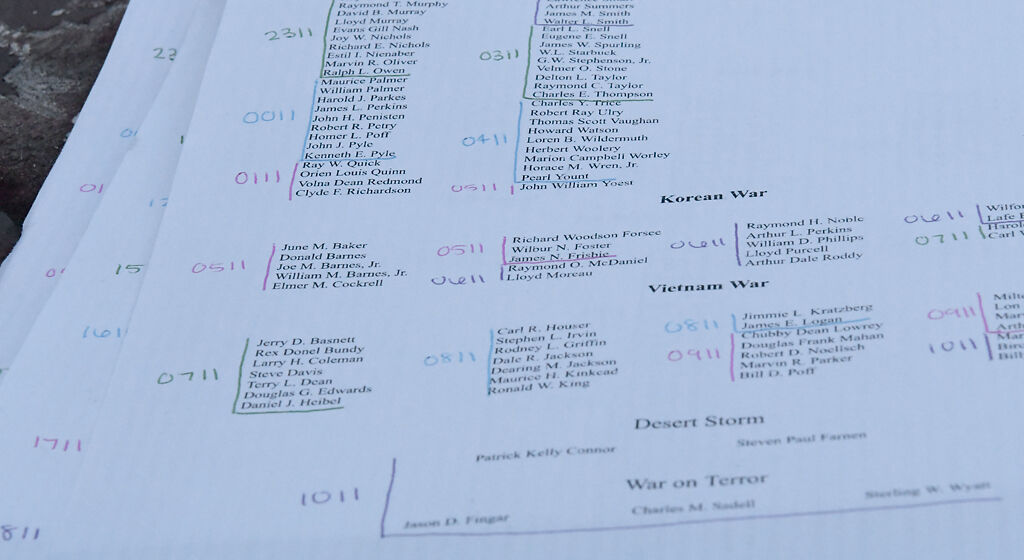 Raymond T. Murphy
David B. Murray
Lloyd Murray
2311
Evans Gill Nash
Joy W. Nichols
Richard E. Nichols
Estil I. Nienaber
Marvin R. Oliver
Ralph L. Owen
Maurice Palmer
William Palmer
Harold J. Parkes
James L. Perkins
0011
John H. Penisten
Robert R. Petry
Homer L. Poff
John J. Pyle
Kenneth E. Pyle
Ray W. Quick
0111
Orien Louis Quinn
Volna Dean Redmond
Clyde F. Richardson
Arthur Summers
James M. Smith
Walter L. Smith
Earl L. Snell
Eugene E. Snell
James W. Spurling
0311
W.L. Starbuck
G.W. Stephenson, Jr.
Velmer O. Stone
Delton L. Taylor
Raymond C. Taylor
Charles E. Thompson
Charles Y. Trice
Robert Ray Ulry
Thomas Scott Vaughan
Howard Watson
0411
Loren B. Wildermuth
Herbert Woolery
Marion Campbell Worley
Horace M. Wren, Jr.
Pearl Yount
0511
John William Yoest
Korean War
June M. Baker
Donald Barnes
0511
Joe M. Barnes, Jr.
William M. Barnes, Jr.
Elmer M. Cockrell
Richard Woodson Forsee
0511
Wilbur N. Foster
James N. Frisbie
Raymond O. McDaniel
0611
Lloyd Moreau
Raymond H. Noble
Arthur L. Perkins
0611
William D. Phillips
Lloyd Purcell
Arthur Dale Roddy
0611
0711
Vietnam War
Jerry D. Basnett
Rex Donel Bundy
Larry H. Coleman
0711
Steve Davis
Terry L. Dean
Douglas G. Edwards
Daniel J. Heibel
Carl R. Houser
Stephen L. Irvin
Rodney L. Griffin
0811
Dale R. Jackson
Dearing M. Jackson
Maurice H. Kinkead
Ronald W. King
Jimmie L. Kratzberg
0811
James E. Logan
Chubby Dean Lowrey
0911
Douglas Frank Mahan
Robert D. Noelisch
Marvin R. Parker
Bill D. Poff
0911
1011
Desert Storm
Patrick Kelly Connor
Steven Paul Farnen
War on Terror
1011
Jason D. Fingar
Charles M. Sadell
Sterling W. Wyatt
15
1611
1711
811